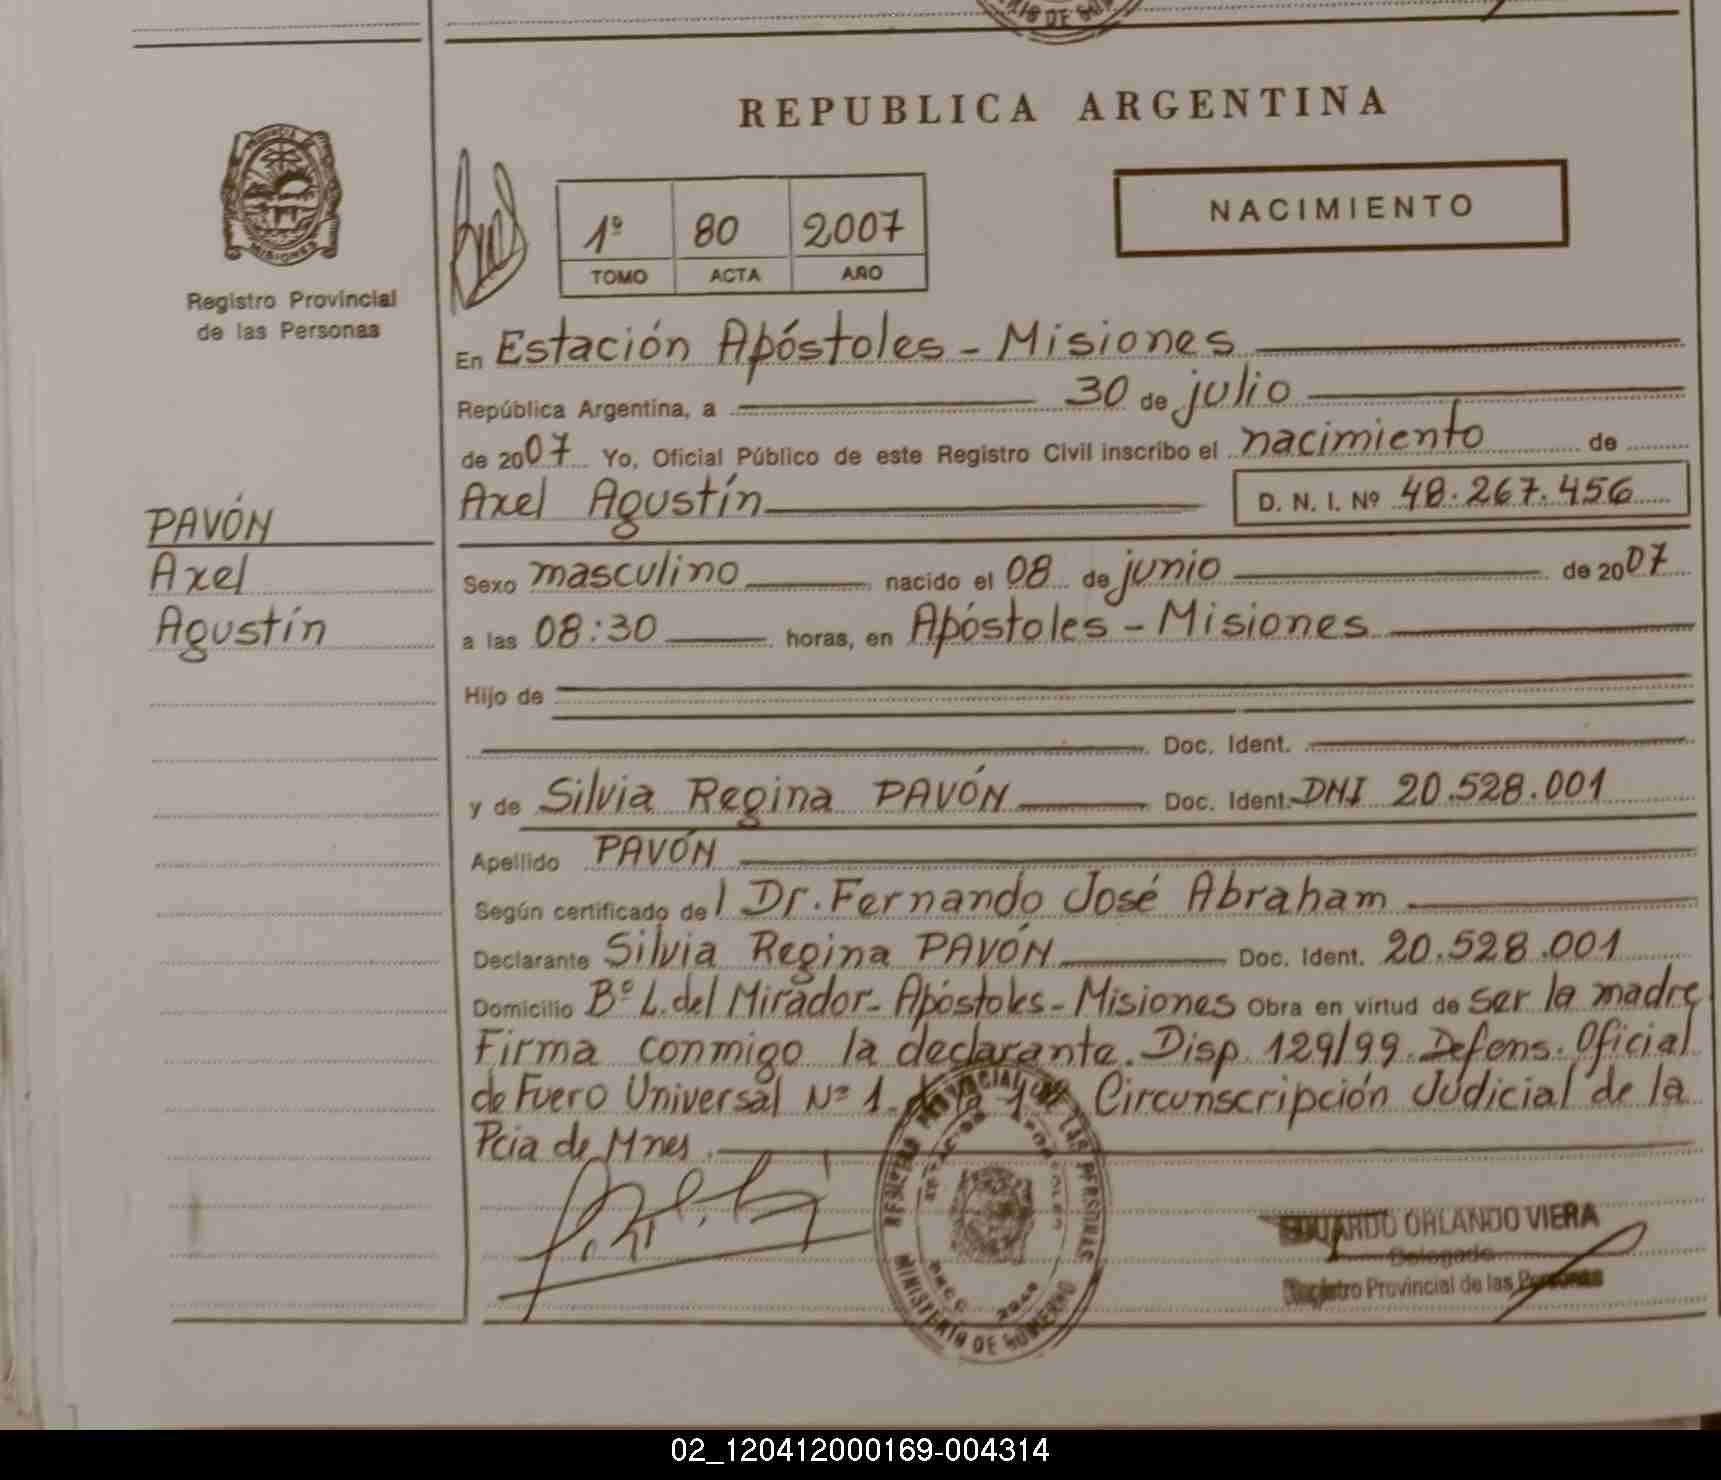 RIO DE GO
REPUBLICA ARGENTINA
MISIONES
Registro Provincial
de las Personas
1º 80 2007
TOMO ACTA AÑO
NACIMIENTO
En Estación Apóstoles - Misiones
República Argentina, a 30 de julio
de 2007 Yo, Oficial Público de este Registro Civil inscribo el nacimiento de
Axel Agustín D. N. I. Nº 48.267.456
PAVÓN
Axel
Agustín
Sexo masculino nacido el 08 de junio de 2007
a las 08:30 horas, en Apóstoles - Misiones
Hijo de
Doc. Ident.
y de Silvia Regina PAVÓN Doc. Ident. DNI 20.528.001
Apellido PAVÓN
Según certificado del Dr. Fernando José Abraham
Declarante Silvia Regina PAVÓN Doc. Ident. 20.528.001
Domicilio Bº L. del Mirador - Apóstoles - Misiones Obra en virtud de ser la madre
Firma conmigo la declarante. Disp. 129/99. Defens. Oficial
de Fuero Universal Nº 1. de la 1ª Circunscripción Judicial de la
Pcia de Mnes.
REGISTRO PROVINCIAL DE LAS PERSONAS
MINISTERIO DE GOBIERNO
EDUARDO ORLANDO VIERA
Delegado
Registro Provincial de las Personas
02_120412000169-004314